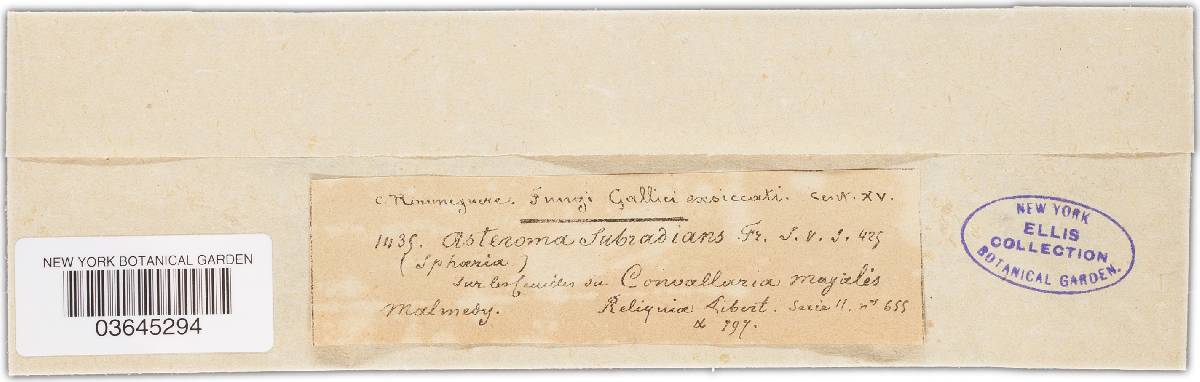 C. Roumeguere. Fungi Gallici exsiccati. Cent. XV.
1435. Asteroma Subradians Fr. S. V. S. 425
(Sphæria)
Sur les feuilles du Convallaria majalis
Malmedy. Reliquiæ Libert. Serie II. nos 655
& 797.
NEW YORK BOTANICAL GARDEN
03645294
NEW YORK
ELLIS
COLLECTION
BOTANICAL GARDEN.